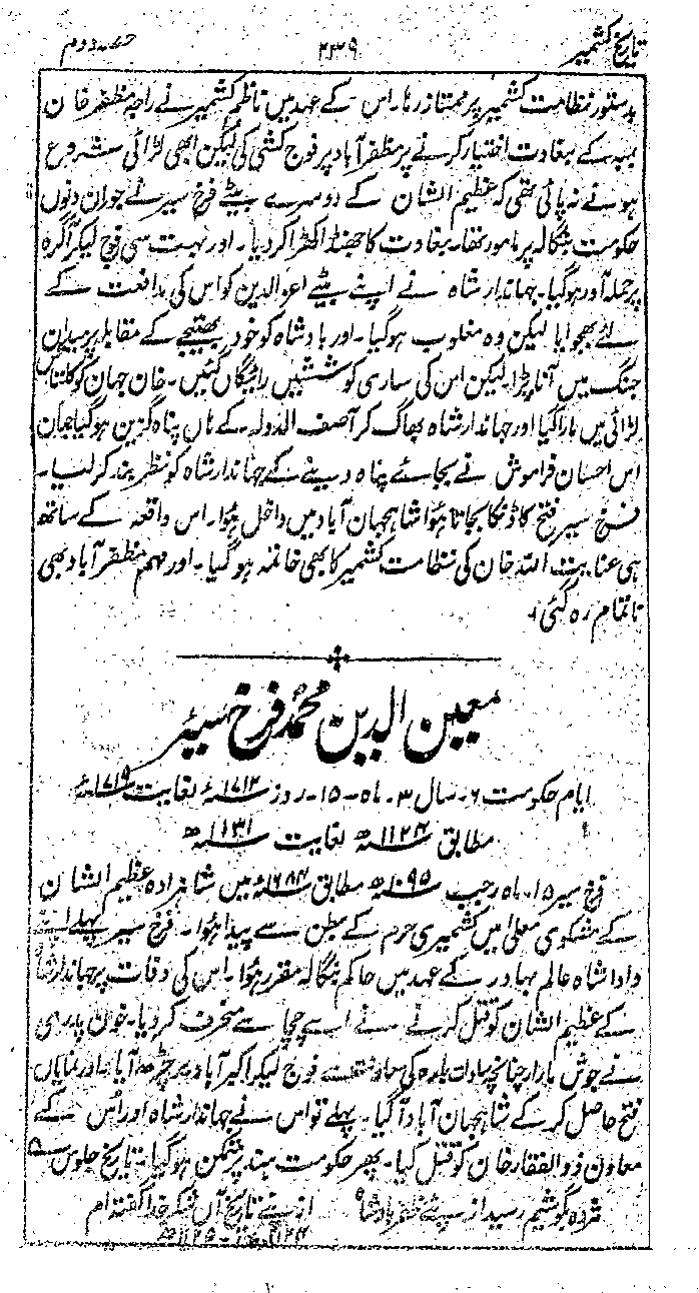 تاریخ کشمیر ۲۳۹ حصہ دوم
بدستور نظامت کشمیر پر ممتاز رہا۔ اس کے عہد میں ناظم کشمیر نے راجہ مظفر خان
بمبہ کے بغاوت اختیار کرنے پر مظفر آباد پر فوج کشی کی لیکن ابھی لڑائی شروع
ہونے نہ پائی تھی کہ عظیم الشان کے دوسرے بیٹے فرخ سیر نے جو ان دنوں
حکومت بنگالہ پر مامور تھا۔ بغاوت کا جھنڈا کھڑا کر دیا۔ اور بہت سی فوج لیکر آگرہ
پر حملہ آور ہو گیا۔ جہاندار شاہ نے اپنے بیٹے اعز الدین کو اس کی مدافعت کے
لئے بھجوایا لیکن وہ مغلوب ہو گیا۔ اور بادشاہ کو خود بھتیجے کے مقابلہ پر میدان
جنگ میں آنا پڑا۔ لیکن اس کی ساری کوششیں رائیگاں گئیں۔ خان جہان کوکلتاش
لڑائی میں مارا گیا اور جہاندار شاہ بھاگ کر آصف الدولہ کے ہاں پناہ گزین ہو گیا جہاں
اس احسان فراموش نے بجائے پناہ دینے کے جہاندار شاہ کو نظر بند کر لیا۔
فرخ سیر فتح کا ڈنکا بجاتا ہوا شاہجہان آباد میں داخل ہوا۔ اس واقعہ کے ساتھ
ہی عنایت اللہ خان کی نظامت کشمیر کا بھی خاتمہ ہو گیا۔ اور مہم مظفر آباد بھی
ناتمام رہ گئی۔
معین الدین محمد فرخ سیر
ایام حکومت ۶۔ سال ۳۔ ماہ۔ ۱۵۔ روز ۱۷۱۲ء لغایت ۱۷۱۹ء
مطابق ۱۱۲۴ھ لغایت ۱۱۳۱ھ
فرخ سیر ۱۵۔ ماہ رجب ۱۰۹۵ھ مطابق ۱۶۸۴ء میں شاہزادہ عظیم الشان
کے مشکوی معلیٰ میں کشمیری حرم کے بطن سے پیدا ہوا۔ فرخ سیر پہلے اپنے
دادا شاہ عالم بہادر کے عہد میں حاکم بنگالہ مقرر ہوا۔ اس کی وفات پر جہاندار شاہ
کے عظیم الشان کو قتل کرنے نے اسے چچا سے منحرف کر دیا۔ خون پدری
نے جوش مارا۔ چنانچہ سادات بارہہ کی معاونت سے فوج لیکر اکبر آباد پر چڑھ آیا۔ اور نمایاں
فتح حاصل کر کے شاہجہان آباد آ گیا۔ پہلے تو اس نے جہاندار شاہ اور اُس کے
معاون ذوالفقار خان کو قتل کیا۔ پھر حکومت ہند پر متمکن ہو گیا۔ تاریخ جلوس ہے
مژدہ بگوشم رسید از پئے ظفر بادشاہ از پئے تاریخ آں شکر خدا گفتہ ام